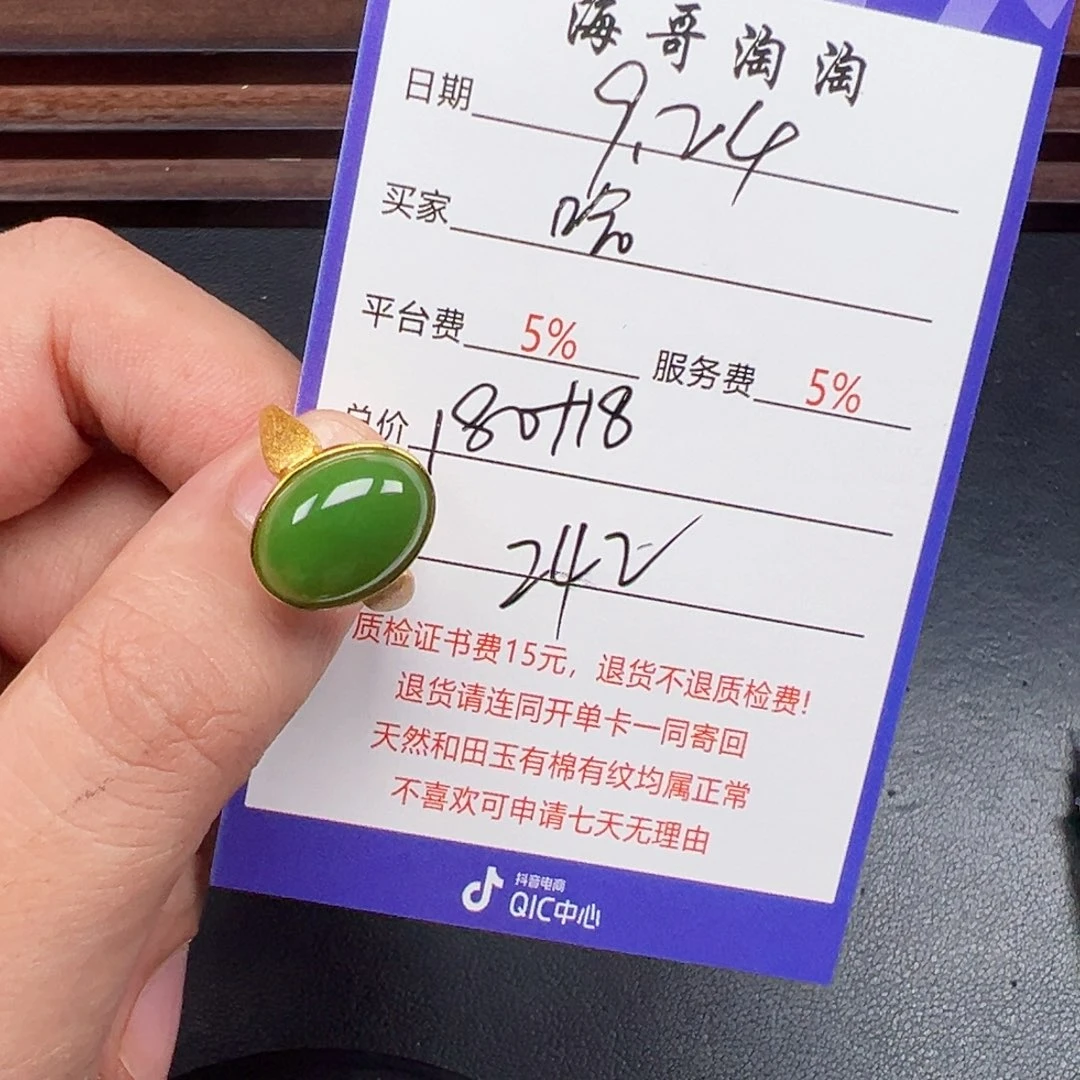 海哥淘淘
日期 9.24
买家
平台费 5% 服务费 5%
总价 180+18
242
质检证书费15元，退货不退质检费!
退货请连同开单卡一同寄回
天然和田玉有棉有纹均属正常
不喜欢可申请七天无理由
抖音电商
QIC中心